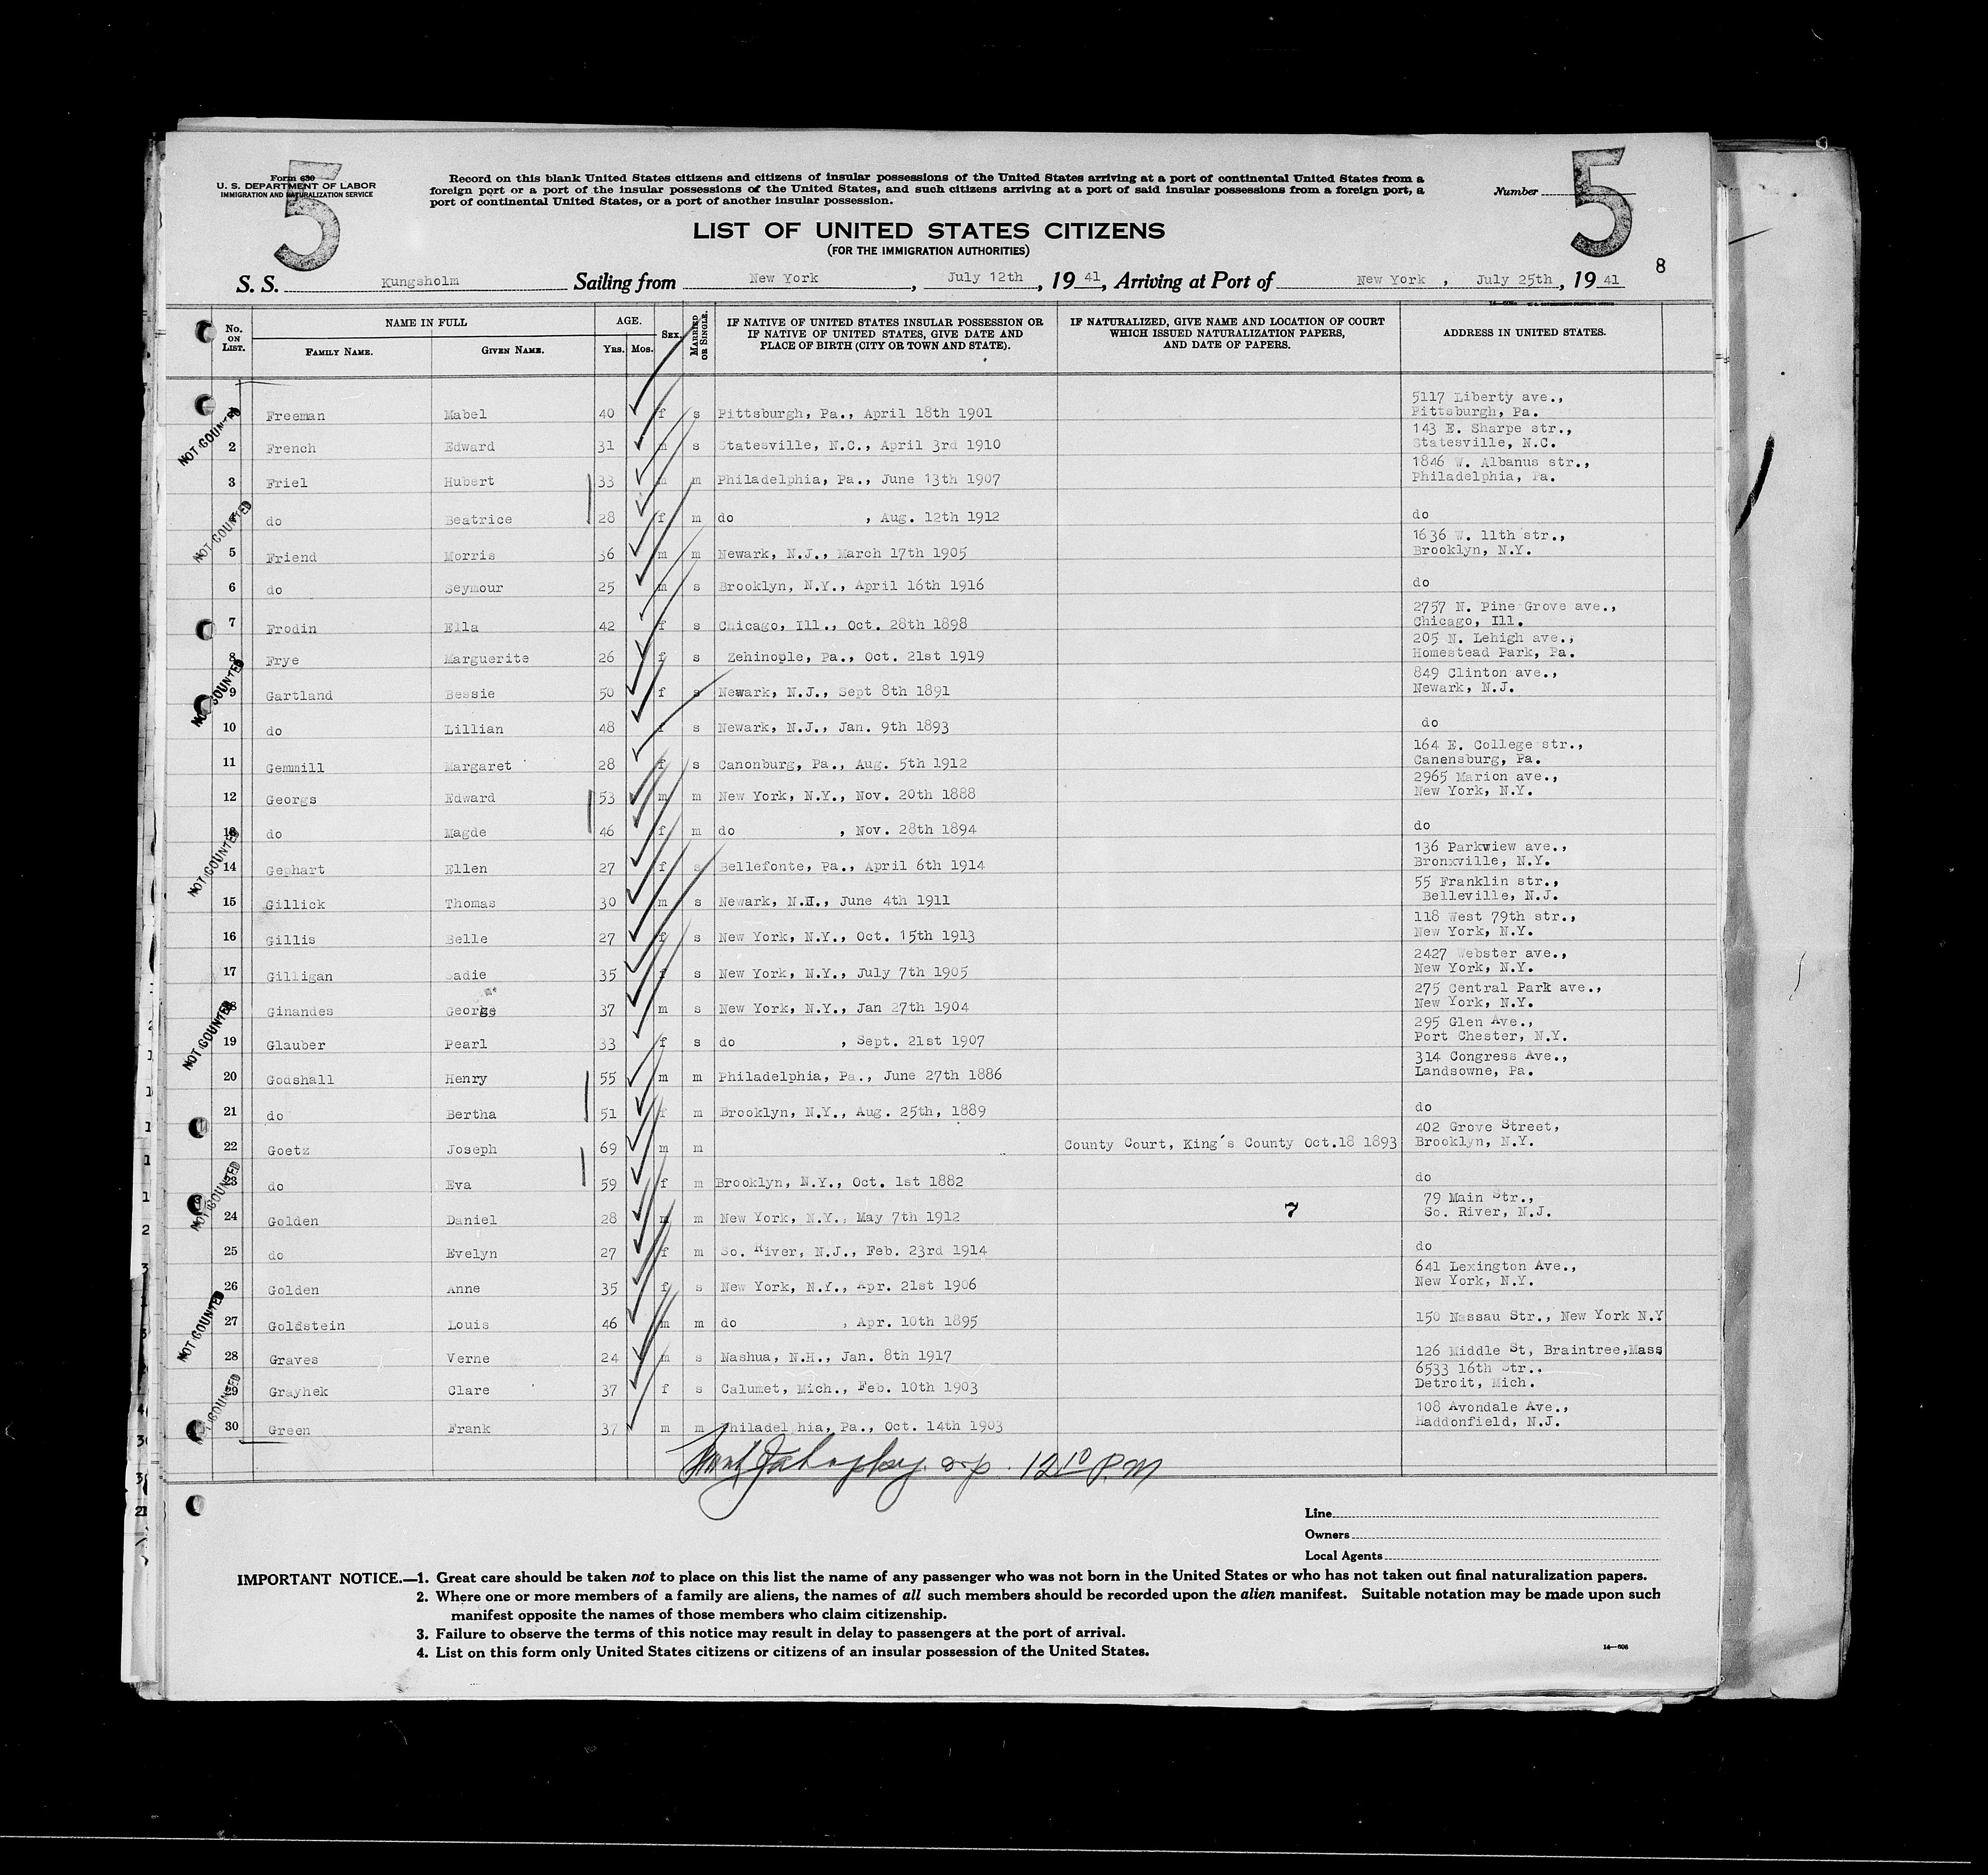 5
5
Form 630
U. S. DEPARTMENT OF LABOR
IMMIGRATION AND NATURALIZATION SERVICE
Record on this blank United States citizens and citizens of insular possessions of the United States arriving at a port of continental United States from a
foreign port or a port of the insular possessions of the United States, and such citizens arriving at a port of said insular possessions from a foreign port, a
port of continental United States, or a port of another insular possession.
Number
LIST OF UNITED STATES CITIZENS
(FOR THE IMMIGRATION AUTHORITIES)
8
S. S. Kungsholm Sailing from New York, July 12th, 1941, Arriving at Port of New York, July 25th, 1941
No. ON LIST. NAME IN FULL AGE. SEX. MARRIED OR SINGLE. IF NATIVE OF UNITED STATES INSULAR POSSESSION OR IF NATIVE OF UNITED STATES, GIVE DATE AND PLACE OF BIRTH (CITY OR TOWN AND STATE). IF NATURALIZED, GIVE NAME AND LOCATION OF COURT WHICH ISSUED NATURALIZATION PAPERS, AND DATE OF PAPERS. ADDRESS IN UNITED STATES.
FAMILY NAME. GIVEN NAME. YRS. MOS.
NOT COUNTED
Freeman Mabel 40 f s Pittsburgh, Pa., April 18th 1901 5117 Liberty ave., Pittsburgh, Pa.
2 French Edward 31 m s Statesville, N.C., April 3rd 1910 143 E. Sharpe str., Statesville, N.C.
3 Friel Hubert 33 m m Philadelphia, Pa., June 13th 1907 1846 W. Albanus str., Philadelphia, Pa.
NOT COUNTED
do Beatrice 28 f m do , Aug. 12th 1912 do
5 Friend Morris 36 m m Newark, N.J., March 17th 1905 1636 W. 11th str., Brooklyn, N.Y.
6 do Seymour 25 m s Brooklyn, N.Y., April 16th 1916 do
7 Frodin Ella 42 f s Chicago, Ill., Oct. 28th 1898 2757 N. Pine Grove ave., Chicago, Ill.
8 Frye Marguerite 26 f s Zehinople, Pa., Oct. 21st 1919 205 N. Lehigh ave., Homestead Park, Pa.
NOT COUNTED
9 Gartland Bessie 50 f s Newark, N.J., Sept 8th 1891 849 Clinton ave., Newark, N.J.
10 do Lillian 48 f s Newark, N.J., Jan. 9th 1893 do
11 Gemmill Margaret 28 f s Canonburg, Pa., Aug. 5th 1912 164 E. College str., Canensburg, Pa.
12 Georgs Edward 53 m m New York, N.Y., Nov. 20th 1888 2965 Marion ave., New York, N.Y.
13 do Magde 46 f m do , Nov. 28th 1894 do
NOT COUNTED
14 Gephart Ellen 27 f s Bellefonte, Pa., April 6th 1914 136 Parkwiew ave., Bronxville, N.Y.
15 Gillick Thomas 30 m s Newark, N.H., June 4th 1911 55 Franklin str., Belleville, N.J.
16 Gillis Belle 27 f s New York, N.Y., Oct. 15th 1913 118 West 79th str., New York, N.Y.
17 Gilligan Sadie 35 f s New York, N.Y., July 7th 1905 2427 Webster ave., New York, N.Y.
18 Ginandes George 37 m s New York, N.Y., Jan 27th 1904 275 Central Park ave., New York, N.Y.
NOT COUNTED
19 Glauber Pearl 33 f s do , Sept. 21st 1907 295 Glen Ave., Port Chester, N.Y.
20 Godshall Henry 55 m m Philadelphia, Pa., June 27th 1886 314 Congress Ave., Landsowne, Pa.
21 do Bertha 51 f m Brooklyn, N.Y., Aug. 25th, 1889 do
22 Goetz Joseph 69 m m County Court, King's County Oct.18 1893 402 Grove Street, Brooklyn, N.Y.
23 do Eva 59 f m Brooklyn, N.Y., Oct. 1st 1882 do
NOT COUNTED
24 Golden Daniel 28 m m New York, N.Y., May 7th 1912 7 79 Main Str., So. River, N.J.
25 do Evelyn 27 f m So. River, N.J., Feb. 23rd 1914 do
26 Golden Anne 35 f s New York, N.Y., Apr. 21st 1906 641 Lexington Ave., New York, N.Y.
NOT COUNTED
27 Goldstein Louis 46 m m do , Apr. 10th 1895 150 Nassau Str., New York N.Y
28 Graves Verne 24 m s Nashua, N.H., Jan. 8th 1917 126 Middle St, Braintree,Mass
29 Grayhek Clare 37 f s Calumet, Mich., Feb. 10th 1903 6533 16th Str.. Detroit, Mich.
NOT COUNTED
30 Green Frank 37 m m Philadel hia, Pa., Oct. 14th 1903 108 Avondale Ave., Haddonfield, N.J.
12 10 P.M
Line
Owners
Local Agents
IMPORTANT NOTICE.—1. Great care should be taken not to place on this list the name of any passenger who was not born in the United States or who has not taken out final naturalization papers.
2. Where one or more members of a family are aliens, the names of all such members should be recorded upon the alien manifest. Suitable notation may be made upon such
manifest opposite the names of those members who claim citizenship.
3. Failure to observe the terms of this notice may result in delay to passengers at the port of arrival.
4. List on this form only United States citizens or citizens of an insular possession of the United States.